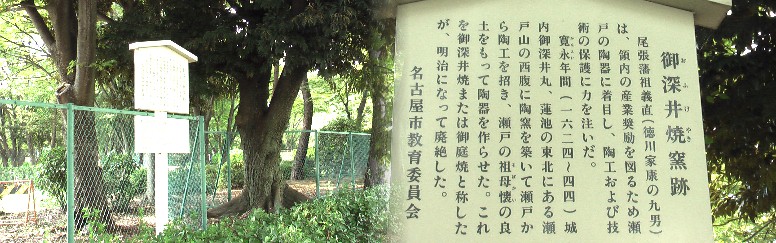 御深井焼窯跡
おふけやき
尾張藩祖義直(徳川家康の九男)
は、領内の産業奨励を図るため瀬
戸の陶器に着目し、陶工および技
術の保護に力を注いだ。
寛永年間(一六二四~四四)城
内御深井丸、蓮池の東北にある瀬
戸山の西腹に陶窯を築いて瀬戸か
ら陶工を招き、瀬戸の祖母懐の良
土をもって陶器を作らせた。これ
を御深井焼または御庭焼と称した
が、明治になって廃絶した。
名古屋市教育委員会